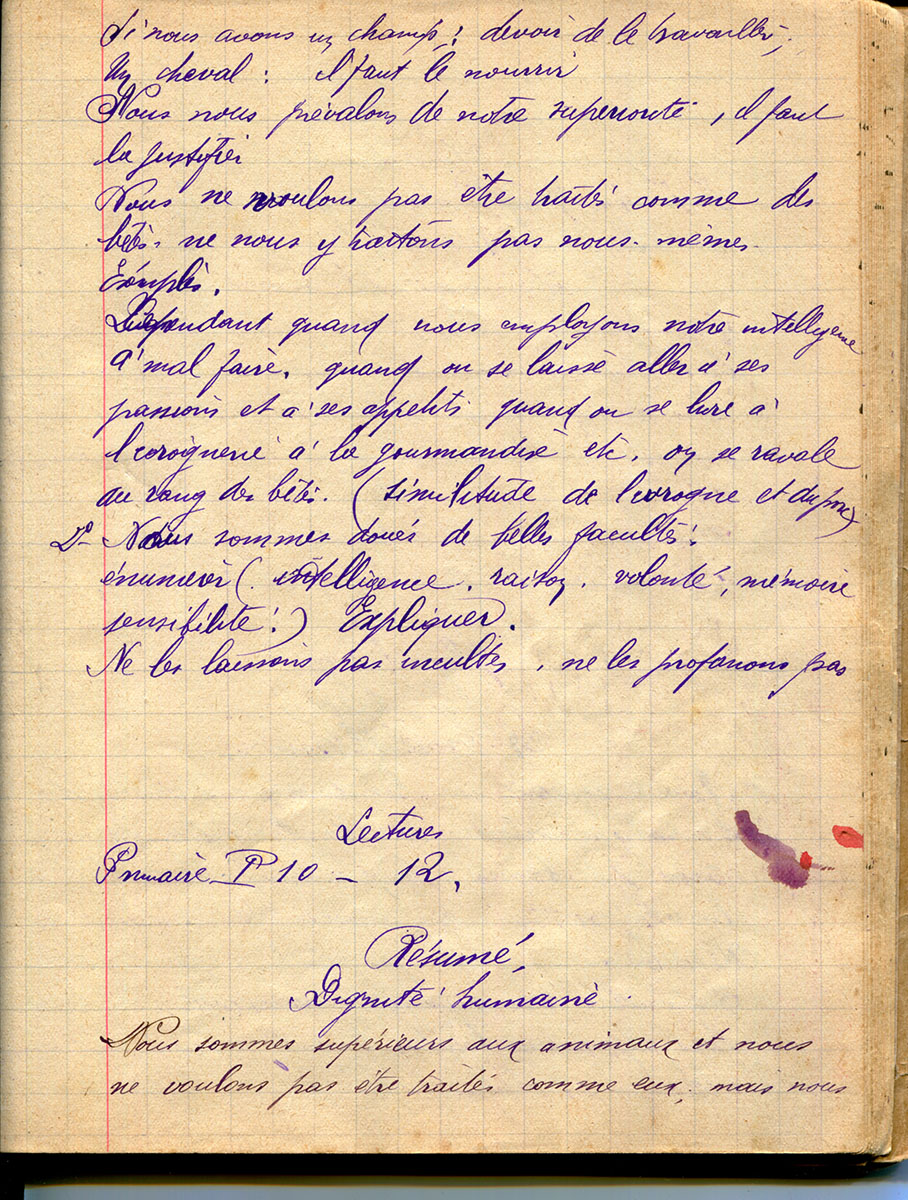 Si nous avons un champ : devoir de le travailler,
Un cheval : il faut le nourrir
Nous nous prévalons de notre supériorité, il faut
la justifier
Nous ne voulons pas être traités comme des
bêtes. ne nous y traitons pas nous-mêmes.
Exemples.
Cependant quand nous employons notre intelligence
à mal faire, quand on se laisse aller à ses
passions et à ses appetits quand on se livre à
l'ivrognerie à la gourmandise etc. on se ravale
au rang des bêtes. (similitude de l'ivrogne et du porc)
2° Nous sommes doués de belles facultés :
énumérer (intelligence, raison, volonté, mémoire
sensibilité.) Expliquer.
Ne les laissons pas incultes, ne les profanons pas
Lectures
Primaire P 10 - 12.
Résumé,
Dignité humaine.
Nous sommes supérieurs aux animaux et nous
ne voulons pas être traités comme eux, mais nous